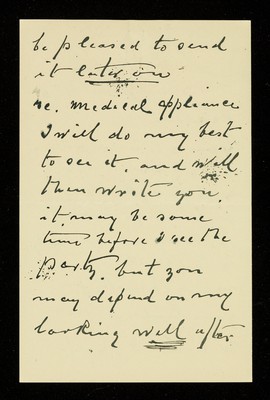 be pleased to send
it later on
re. medical appliance
I will do my best
to see it, and will
then write you.
it may be some
time before I see the
party. but you
may depend on my
looking well after